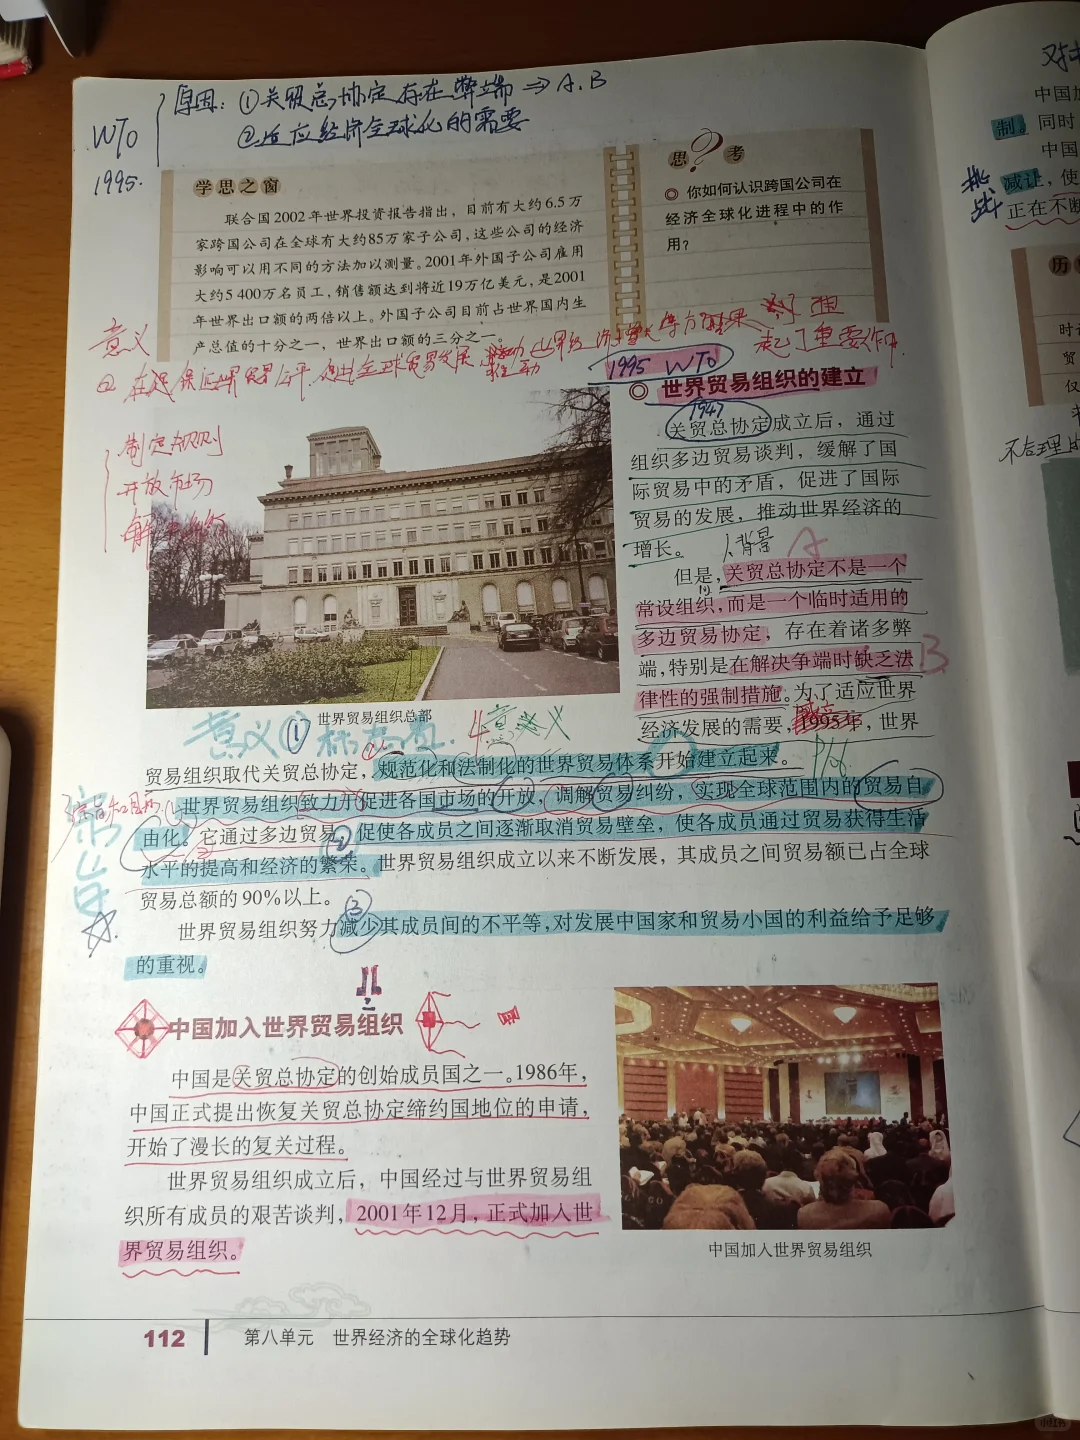 WTO
1995.
原因：①关贸总协定存在弊端⇒A.B
②适应经济全球化的需要
学思之窗
联合国2002年世界投资报告指出，目前有大约6.5万
家跨国公司在全球有大约85万家子公司，这些公司的经济
影响可以用不同的方法加以测量。2001年外国子公司雇用
大约5 400万名员工，销售额达到将近19万亿美元，是2001
年世界出口额的两倍以上。外国子公司目前占世界国内生
产总值的十分之一，世界出口额的三分之一。
思？考
◎ 你如何认识跨国公司在
经济全球化进程中的作
用？
意义
起了重要作用.
制定规则
开放市场
1995 WTO
◎ 世界贸易组织的建立
1947
关贸总协定成立后，通过
组织多边贸易谈判，缓解了国
际贸易中的矛盾，促进了国际
贸易的发展，推动世界经济的
增长。
背景
A
但是，关贸总协定不是一个
常设组织，而是一个临时适用的
多边贸易协定，存在着诸多弊
端，特别是在解决争端时缺乏法
B
律性的强制措施。为了适应世界
经济发展的需要，1995年，世界
世界贸易组织总部
意义①标志是.
4.意义
贸易组织取代关贸总协定，规范化和法制化的世界贸易体系开始建立起来。
世界贸易组织致力于促进各国市场的开放，调解贸易纠纷，实现全球范围内的贸易自
由化。它通过多边贸易，促使各成员之间逐渐取消贸易壁垒，使各成员通过贸易获得生活
②
水平的提高和经济的繁荣。世界贸易组织成立以来不断发展，其成员之间贸易额已占全球
贸易总额的90%以上。
③
世界贸易组织努力减少其成员间的不平等，对发展中国家和贸易小国的利益给予足够
的重视。
中国加入世界贸易组织
中国是关贸总协定的创始成员国之一。1986年，
中国正式提出恢复关贸总协定缔约国地位的申请，
开始了漫长的复关过程。
世界贸易组织成立后，中国经过与世界贸易组
织所有成员的艰苦谈判，2001年12月，正式加入世
界贸易组织。
中国加入世界贸易组织
112
第八单元 世界经济的全球化趋势
中国加
制。同时
中国
挑战
减让，使
正在不断
历
时
贸
仅
不合理